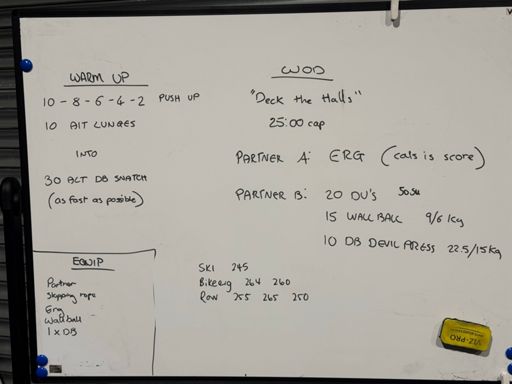 WARM UP
10 - 8 - 6 - 4 - 2 PUSH UP
10 AlT LUNGES
INTO
30 ALT DB SNATCH
(as fast as possible)
EQUIP
Partner
Skipping rope
Erg
Wallball
1 x DB
WOD
"Deck the Halls"
25:00 cap
PARTNER A: ERG (cals is score)
PARTNER B: 20 DU'S 50SU
15 WALL BALL 9/6 kg
10 DB DEVIL PRESS 22.5/15kg
SKI 245
Bikeerg 264 260
Row 255 265 250
VIZ-PRO